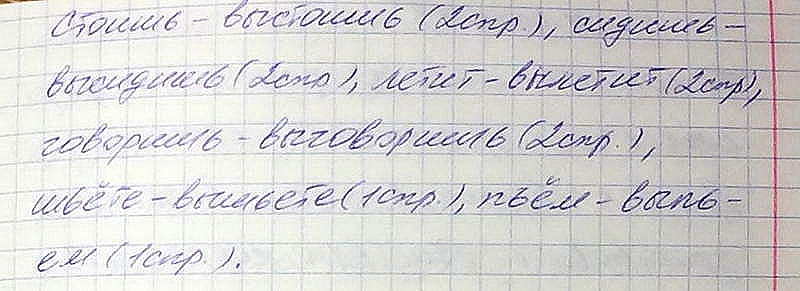 Стоишь - выстоишь (2спр.), сидишь -
высидишь (2спр), летит - вылетит (2спр),
говоришь - выговоришь (2спр.),
шьёте - вышьете (1спр.), пьём - выпь-
ем (1спр.).